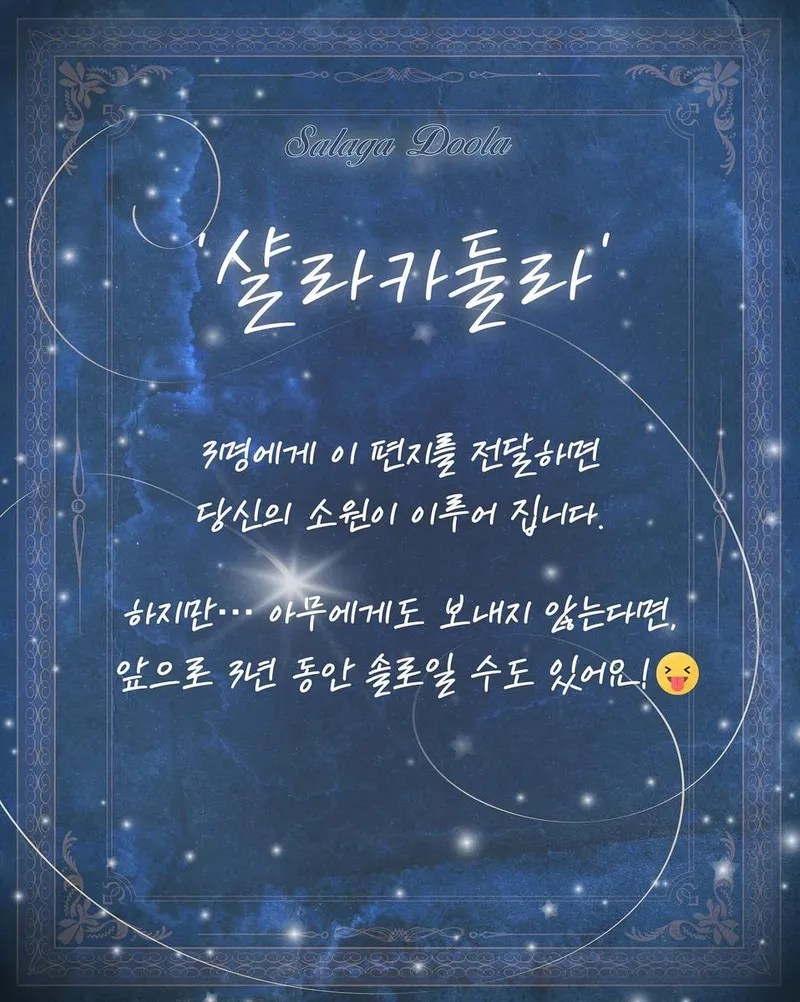 Salaga Doola
'샬라카둘라'
3명에게 이 편지를 전달하면
당신의 소원이 이루어 집니다.
하지만··· 아무에게도 보내지 않는다면,
앞으로 3년 동안 솔로일 수도 있어요!😝